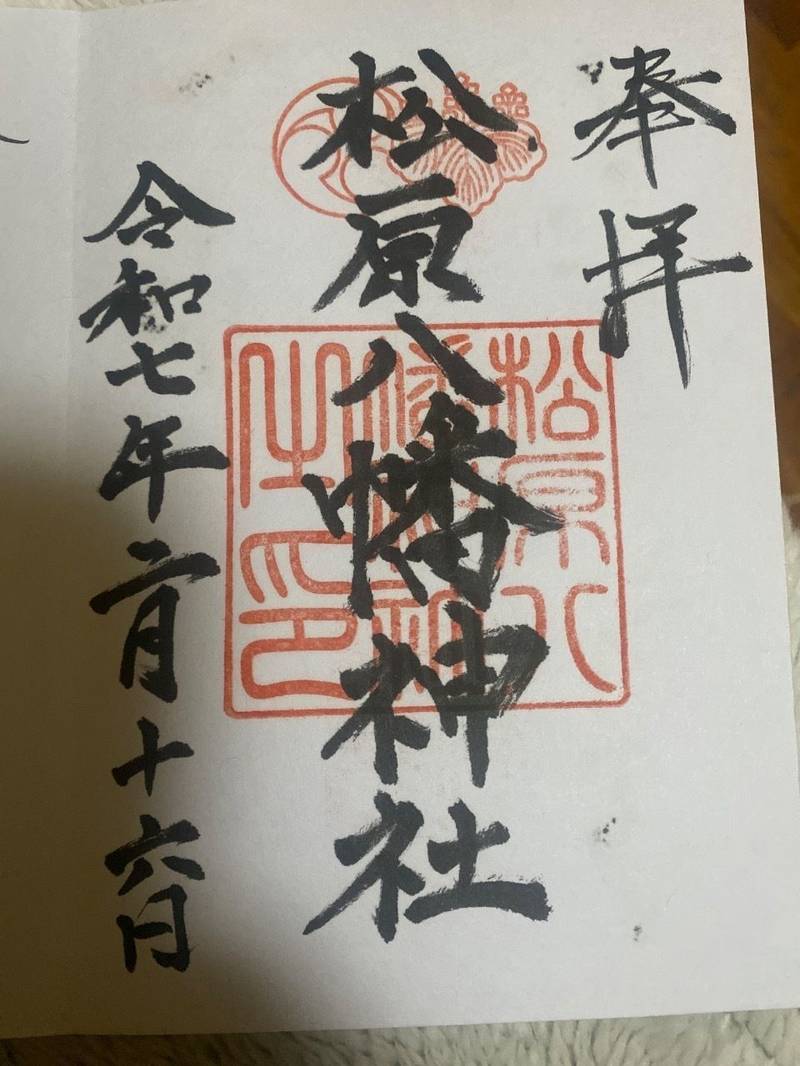 奉拝
松原八幡神社
令和七年二月十六日
松原八
印